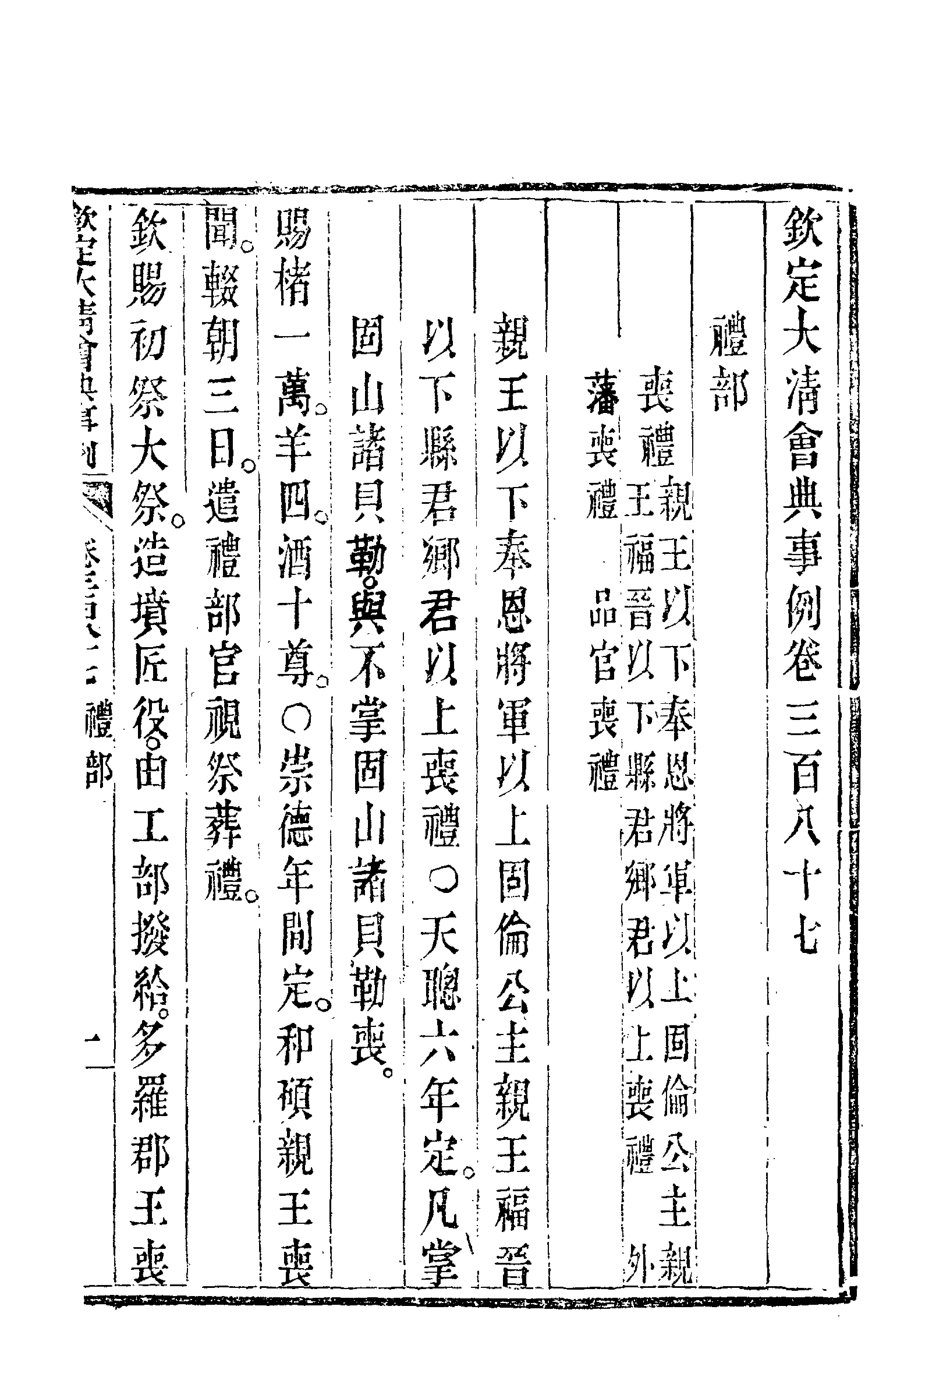 欽定大清會典事例卷三百八十七
禮部
喪禮
親王以下奉恩將軍以上固倫公主親
王福晉以下縣君鄉君以上喪禮　外
藩喪禮　品官喪禮
親王以下奉恩將軍以上固倫公主親王福晉
以下縣君鄉君以上喪禮○天聰六年定。凡掌
固山諸貝勒。與不掌固山諸貝勒喪。
賜楮一萬。羊四。酒十尊。○崇德年間定。和碩親王喪
聞。輟朝三日。遣禮部官視祭葬禮。
欽賜初祭大祭。造墳匠役。由工部撥給。多羅郡王喪
欽定大清會典事例
卷三百八十七 禮部
一